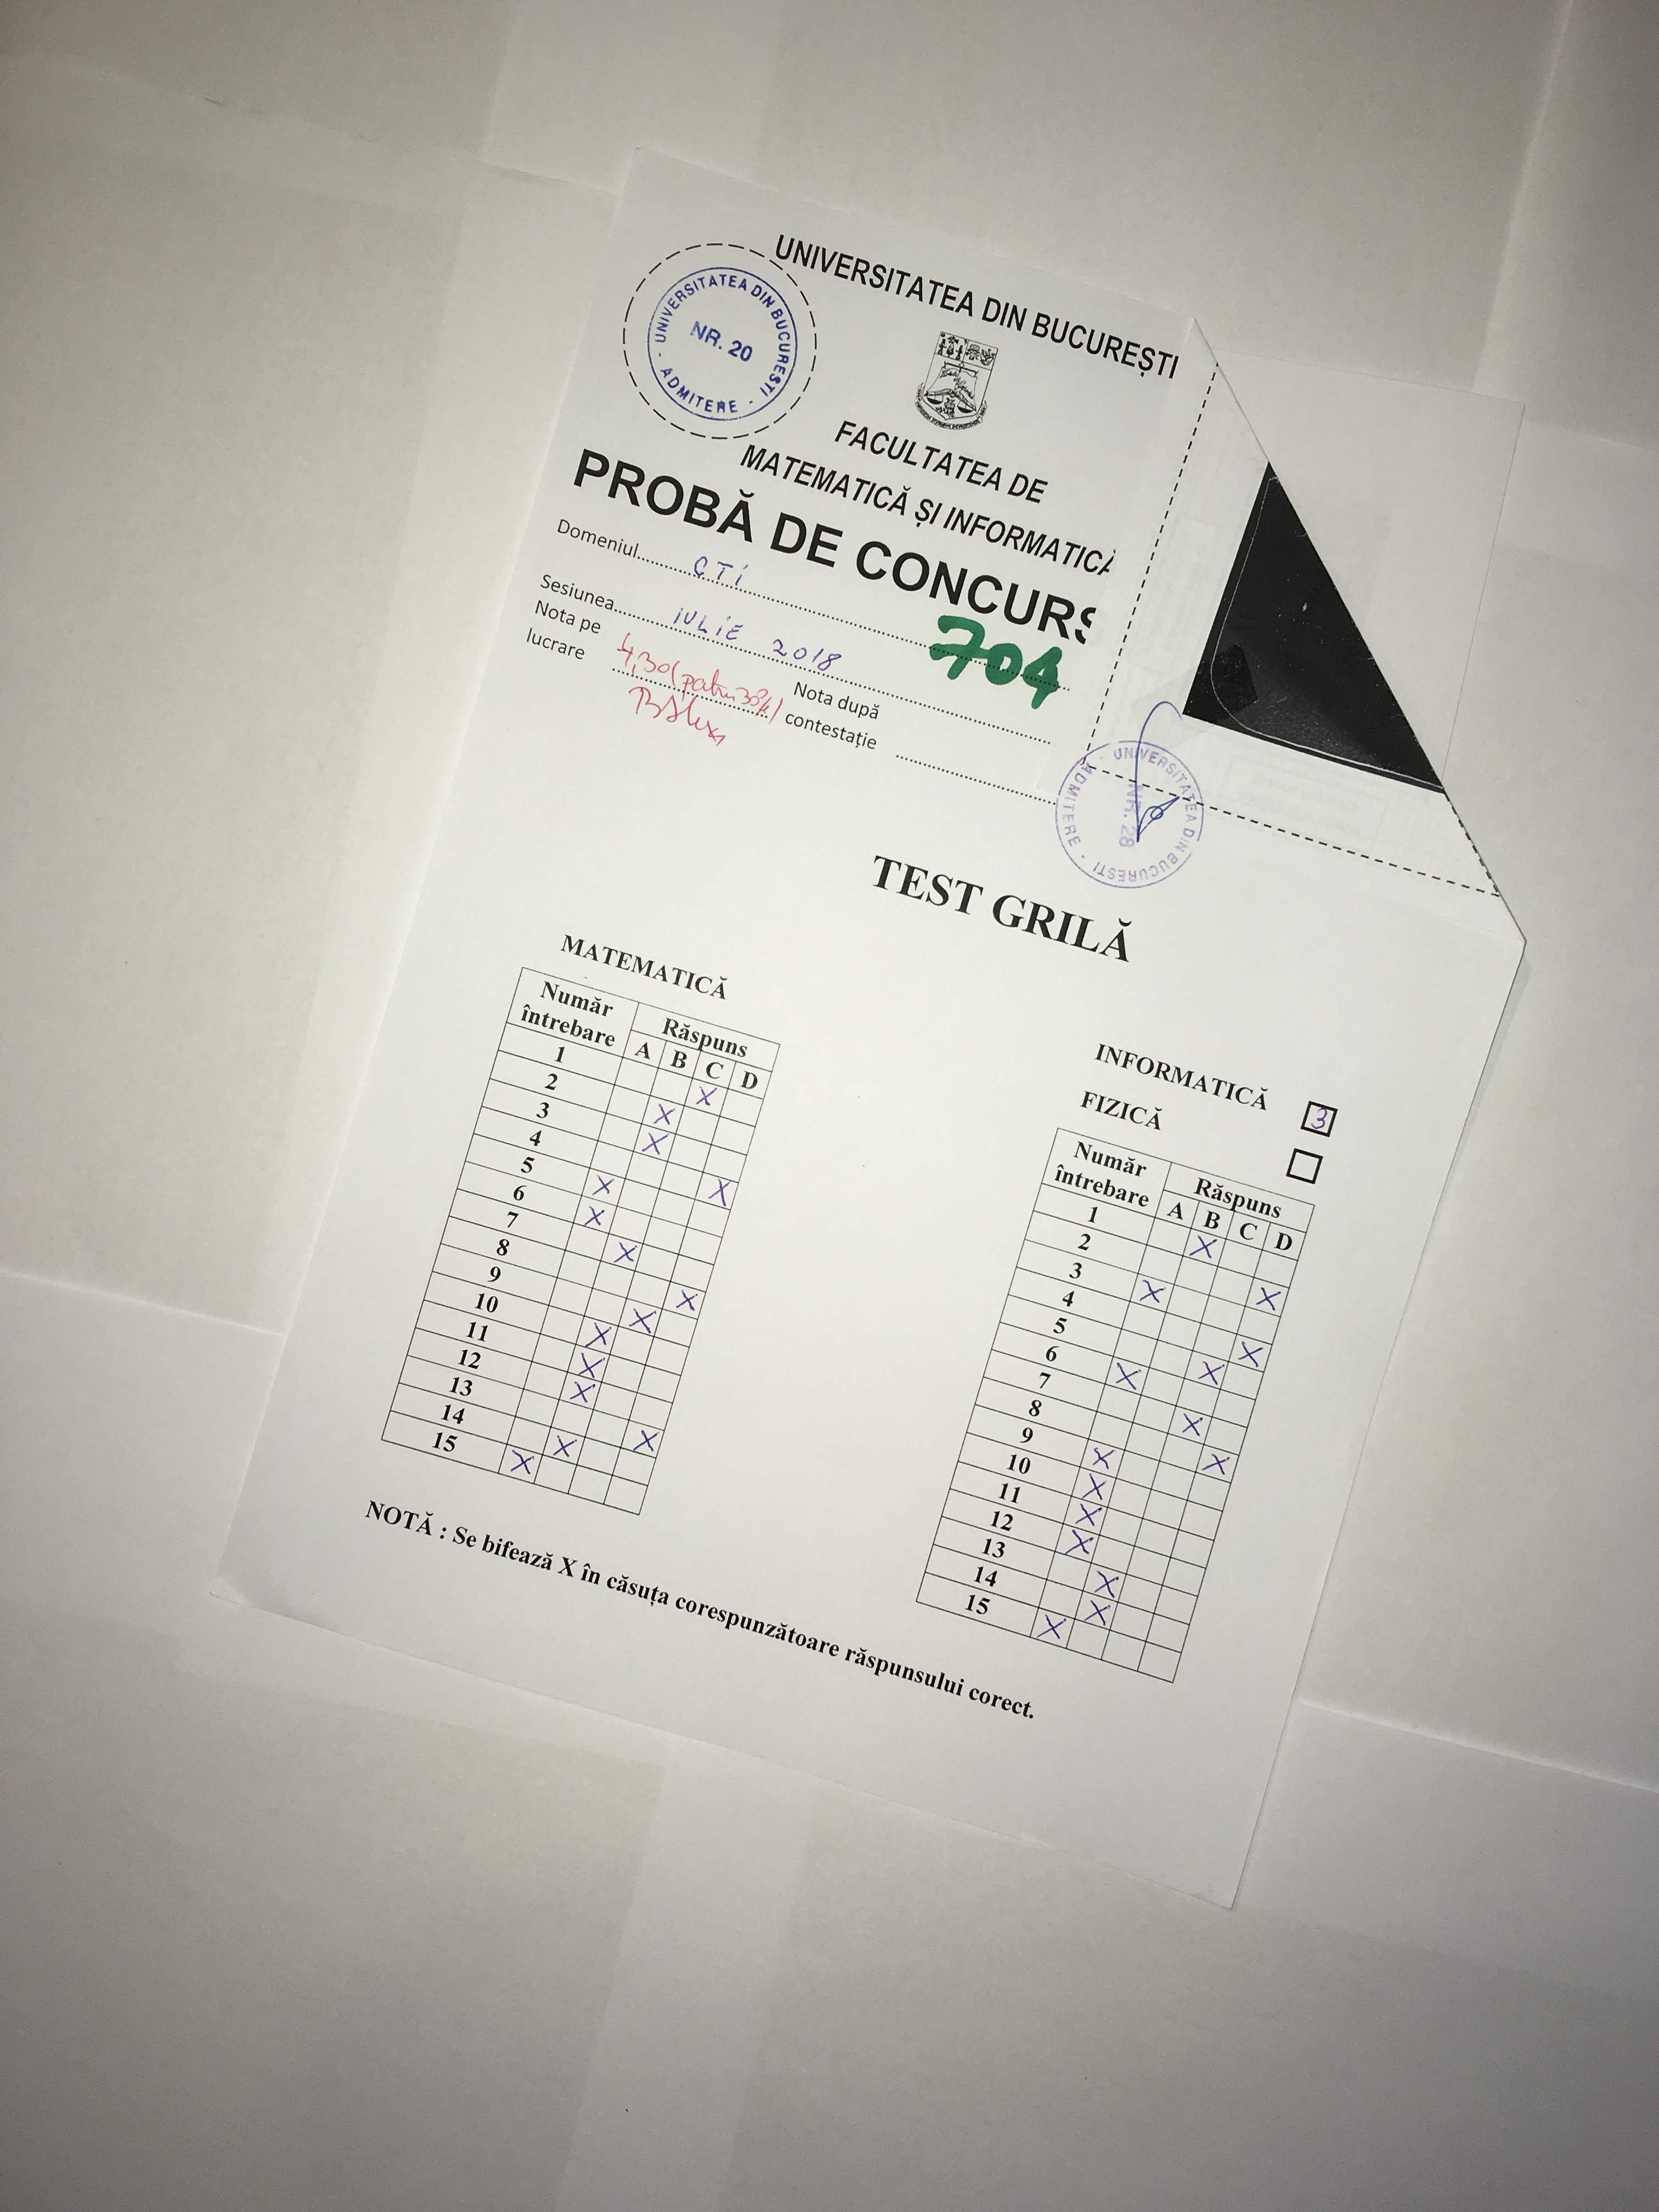 UNIVERSITATEA DIN BUCUREȘTI
· UNIVERSITATEA DIN BUCURESTI · ADMITERE
NR. 20
FACULTATEA DE
MATEMATICĂ ȘI INFORMATICĂ
PROBĂ DE CONCURS
Domeniul CTI
704
Sesiunea IULIE 2018
Nota pe lucrare 4,30 (patru 30%)
Nota după contestație
· UNIVERSITATEA DIN BUCURESTI · ADMITERE
NR. 28
TEST GRILĂ
MATEMATICĂ
Număr întrebare Răspuns
A B C D
1 X
2 X
3 X
4 X
5 X
6 X
7 X
8 X
9 X
10 X
11 X
12 X
13 X
14 X
15 X
INFORMATICĂ 3
FIZICĂ
Număr întrebare Răspuns
A B C D
1 X
2 X
3 X
4 X
5 X
6 X
7 X
8 X
9 X
10 X
11 X
12 X
13 X
14 X
15 X
NOTĂ : Se bifează X în căsuța corespunzătoare răspunsului corect.